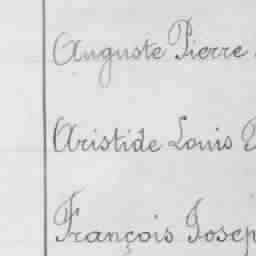 Auguste Pierre
Aristide Louis
François Josep